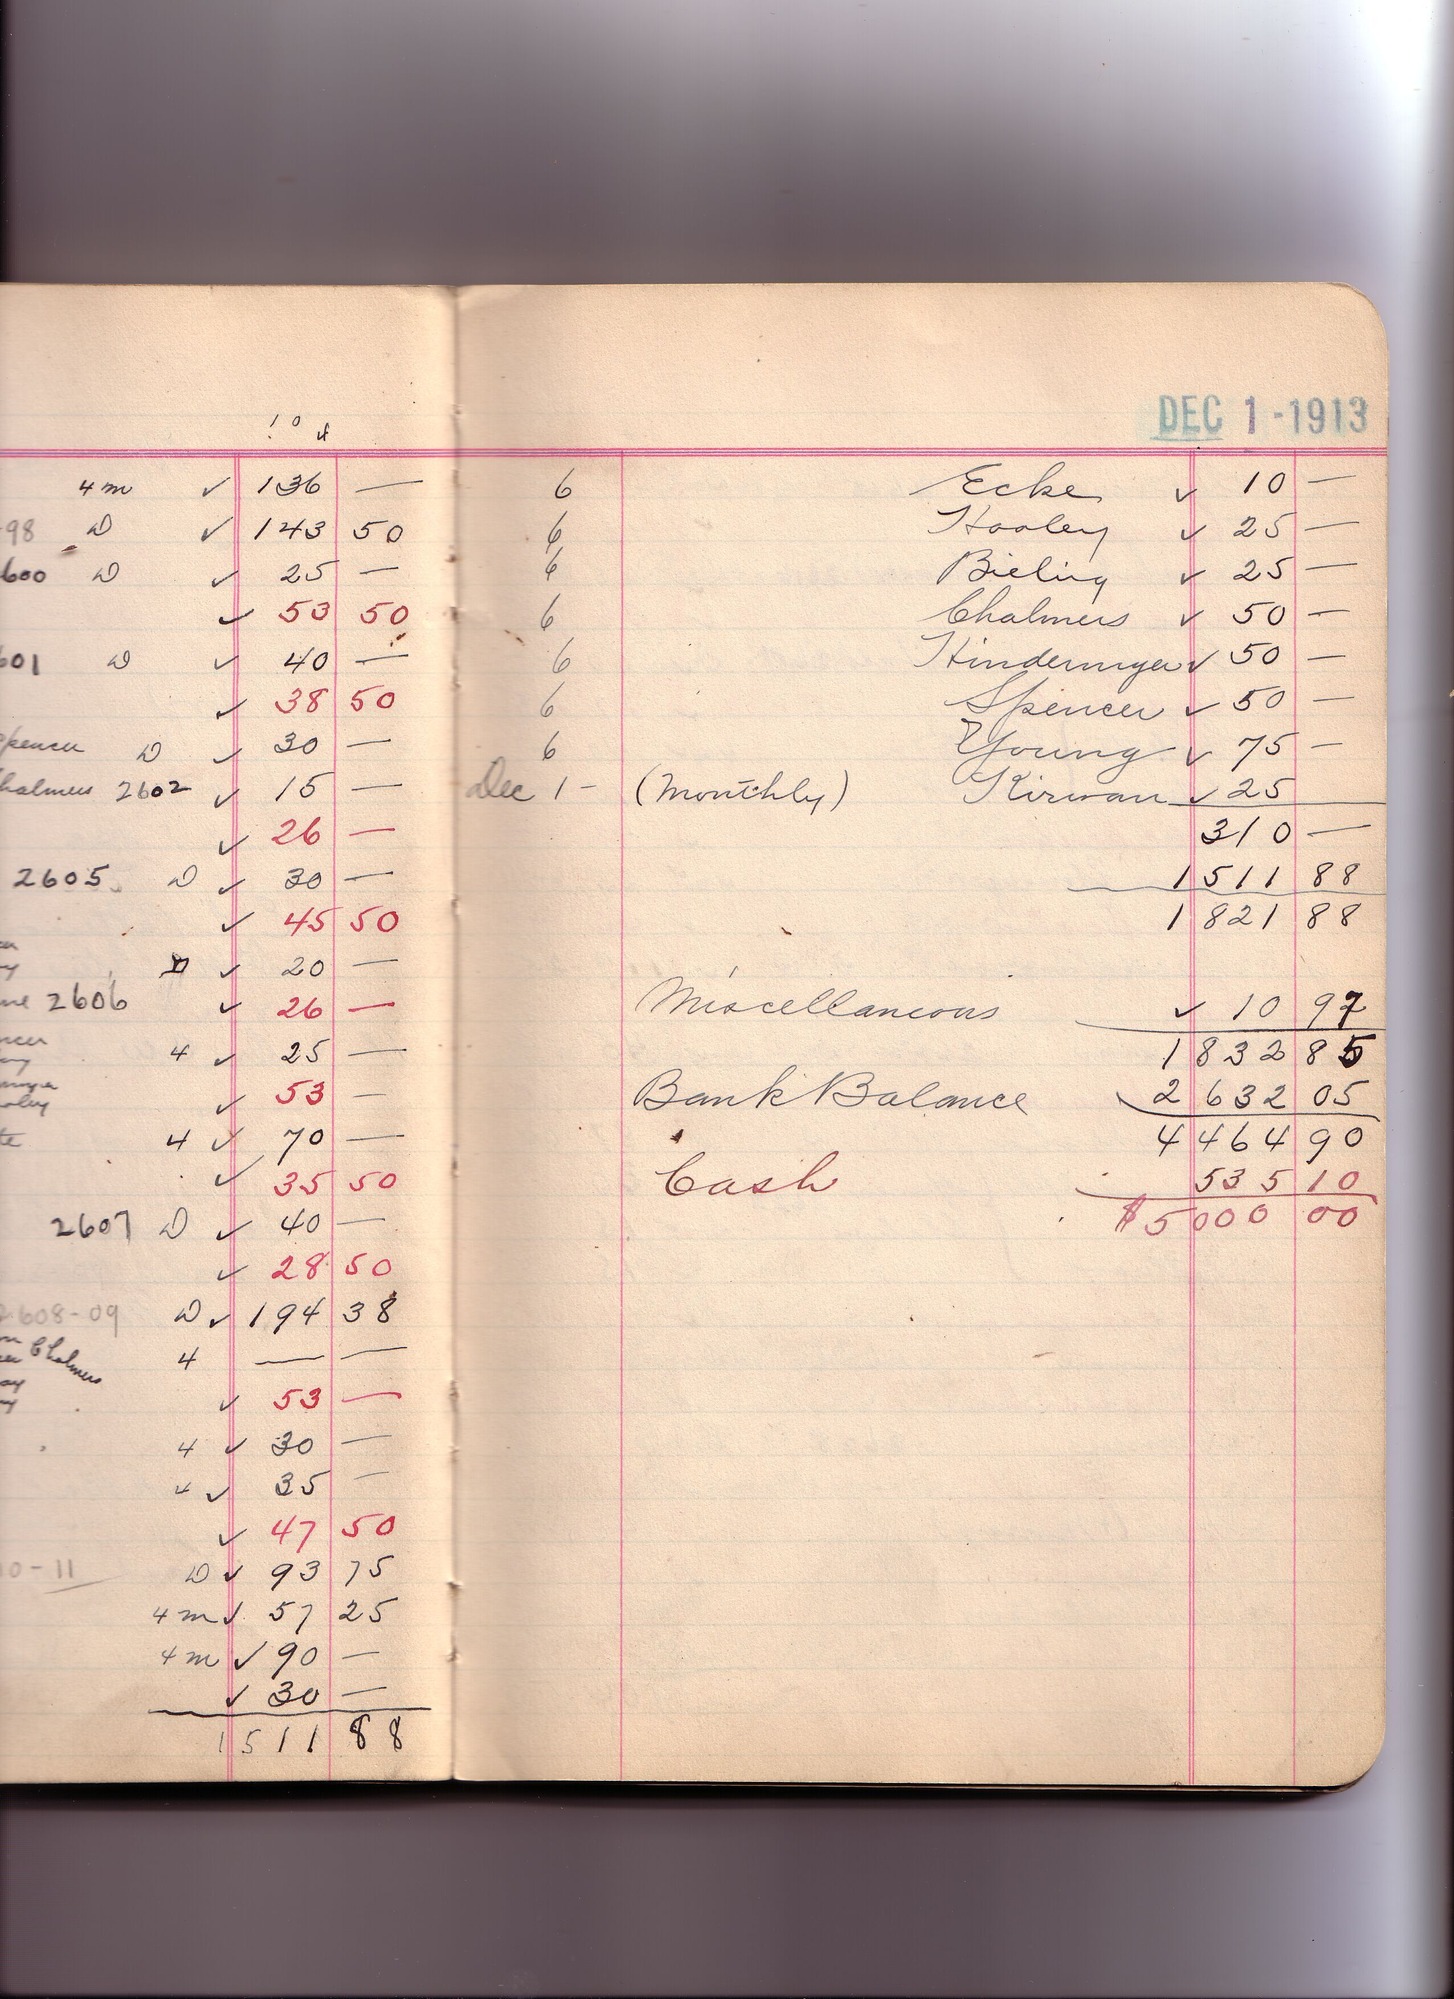 10 4
4 m ✓ 136 —
-98 D ✓ 143 50
600 D ✓ 25 —
✓ 53 50
601 D ✓ 40 —
✓ 38 50
Spencer D ✓ 30 —
Chalmers 2602 ✓ 15 —
✓ 26 —
2605 D ✓ 30 —
✓ 45 50
✓ 20 —
2606 ✓ 26 —
4 ✓ 25 —
✓ 53 —
4 ✓ 70 —
✓ 35 50
2607 D ✓ 40 —
✓ 28 50
2608-09 D ✓ 194 38
Chalmers
4 — —
✓ 53 —
4 ✓ 30 —
4 ✓ 35 —
✓ 47 50
10-11 D ✓ 93 75
4 m ✓ 57 25
4 m ✓ 90 —
✓ 30 —
1511 88
DEC 1 - 1913
6 Ecke ✓ 10 —
6 Hooley ✓ 25 —
6 Bieling ✓ 25 —
6 Chalmers ✓ 50 —
6 Hindermyer ✓ 50 —
6 Spencer ✓ 50 —
6 Young ✓ 75 —
Dec 1 - (Monthly) Kirwan ✓ 25
310 —
1511 88
1821 88
Miscellaneous ✓ 10 97
1832 85
Bank Balance 2632 05
4464 90
Cash 535 10
$5000 00